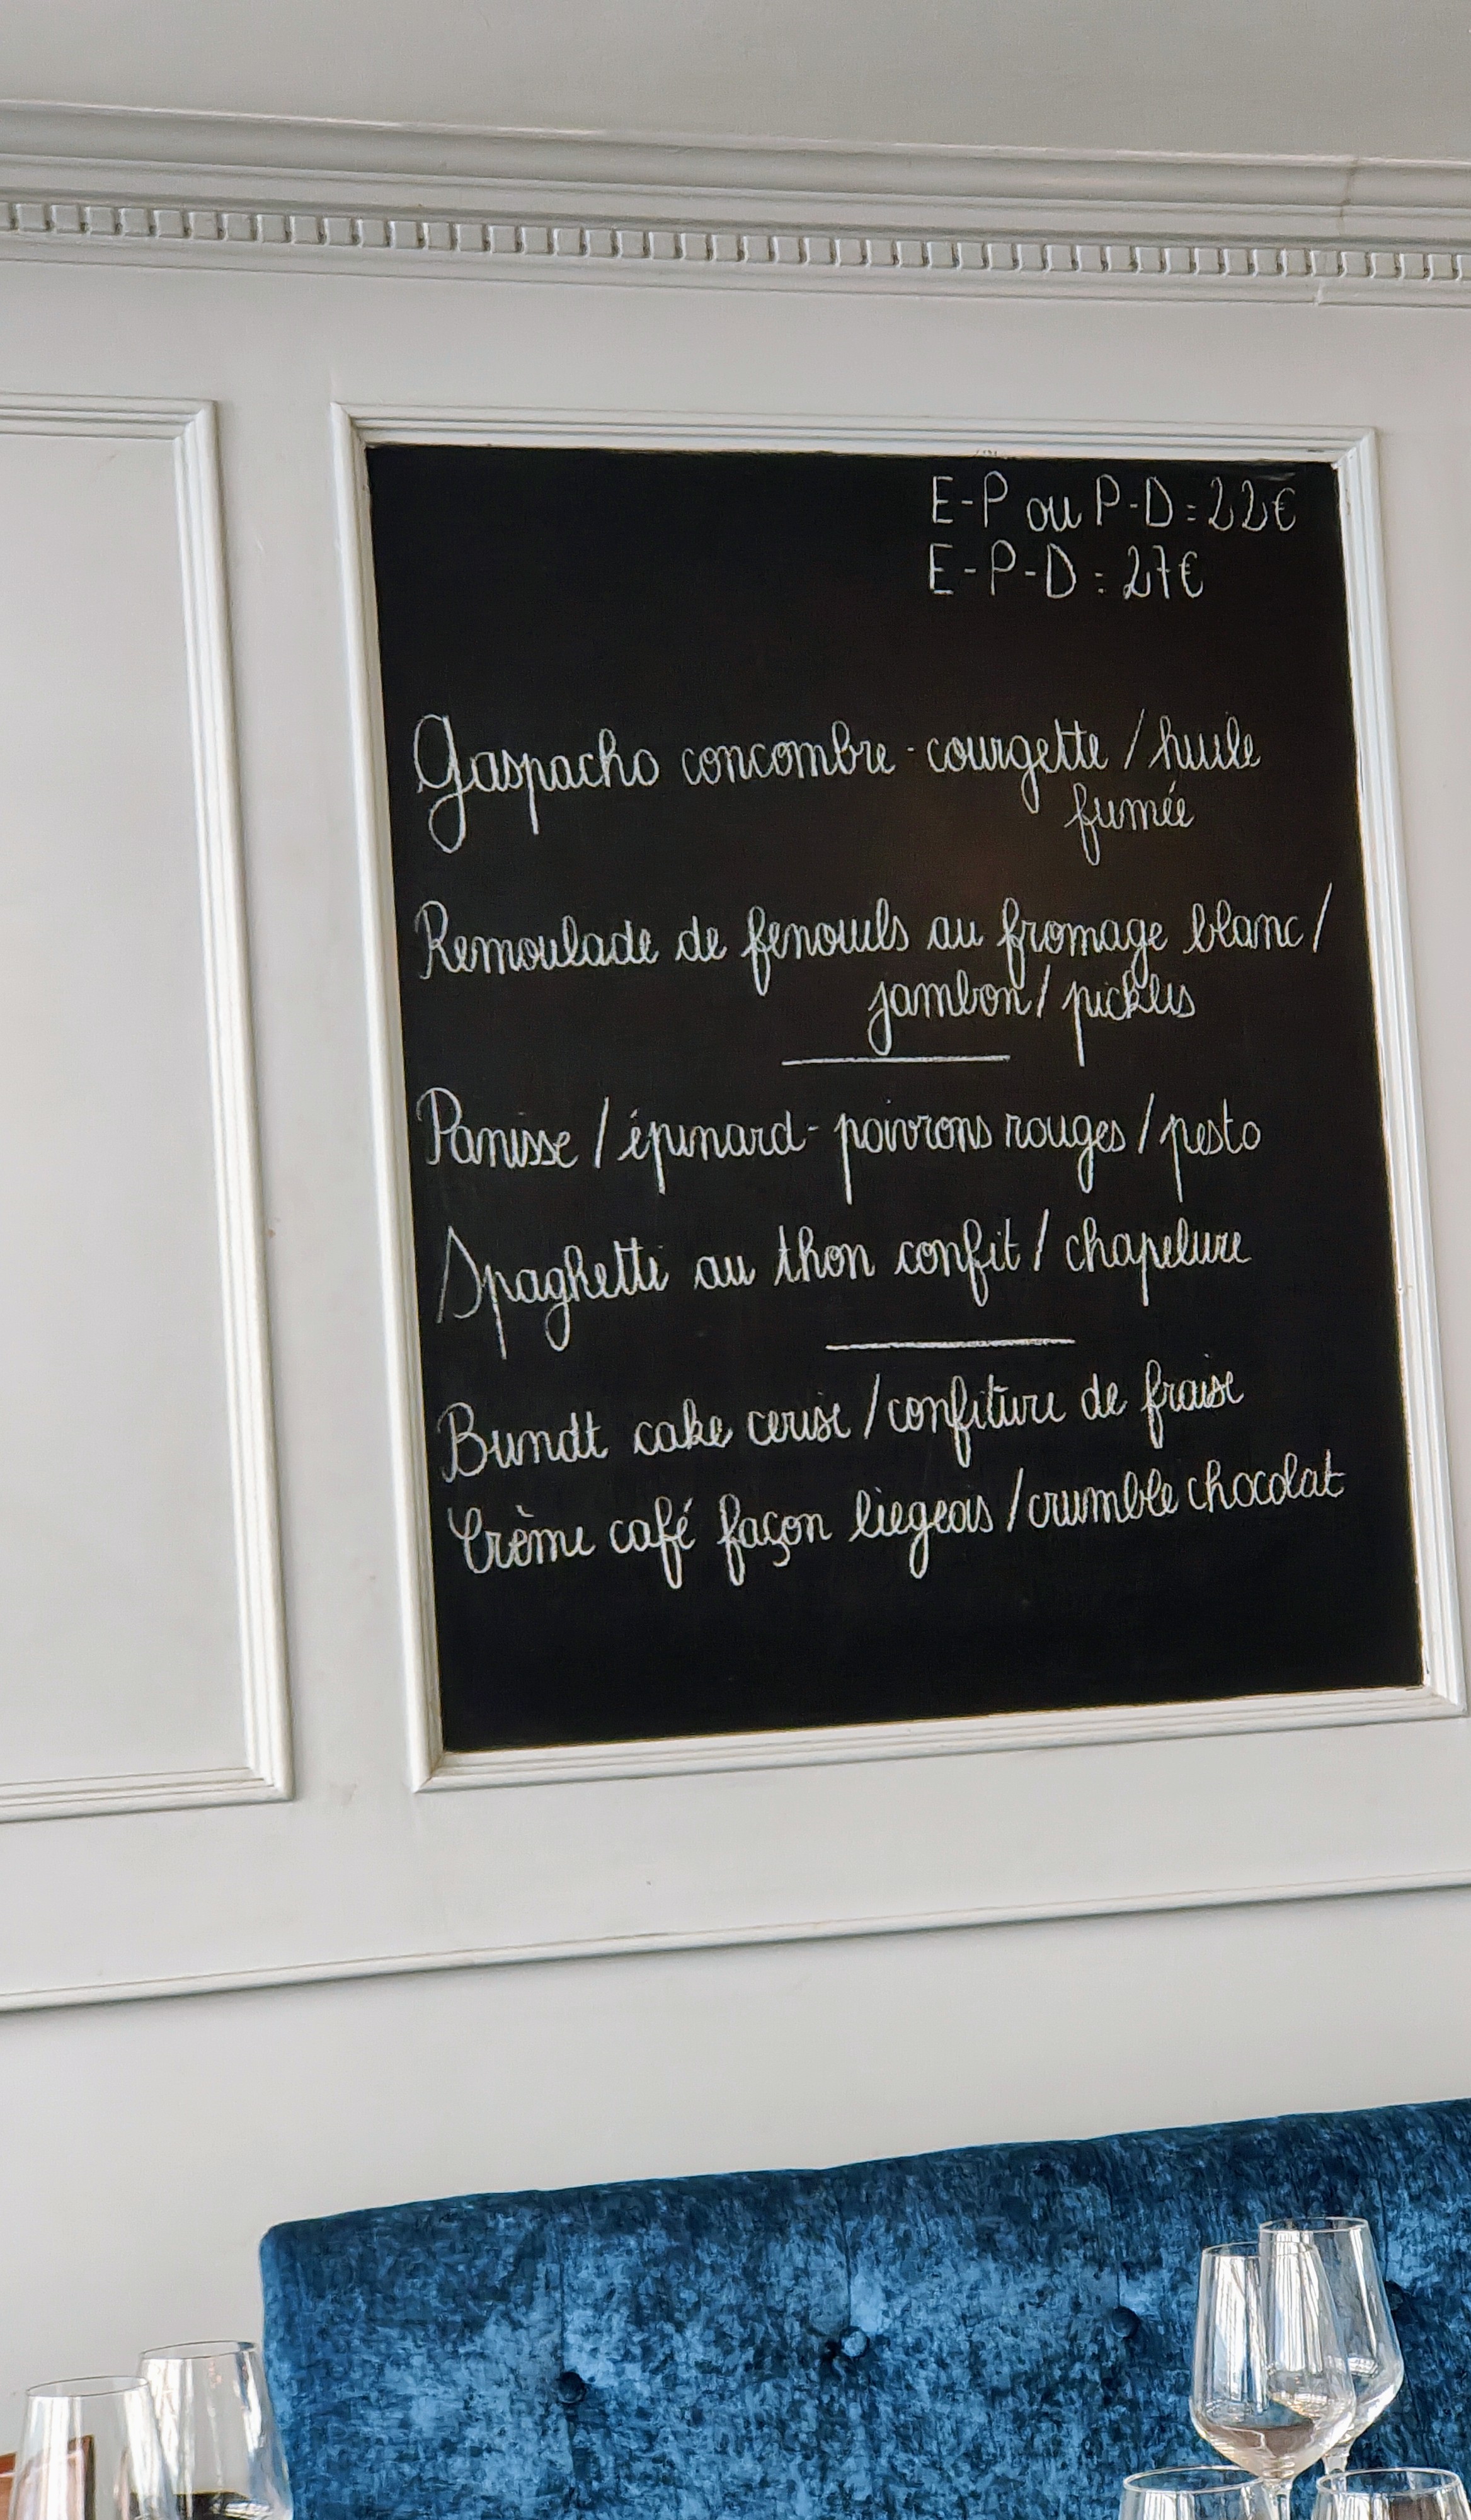 E-P ou P-D = 22€
E-P-D = 27€
Gaspacho concombre - courgette / huile
fumée
Remoulade de fenouils au fromage blanc /
jambon / pickles
Panisse / épinard - poivrons rouges / pesto
Spaghetti au thon confit / chapelure
Bundt cake cerise / confiture de fraise
Crème café façon liegeois / crumble chocolat